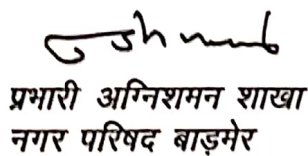 प्रभारी अग्निशमन शाखा
नगर परिषद बाड़मेर